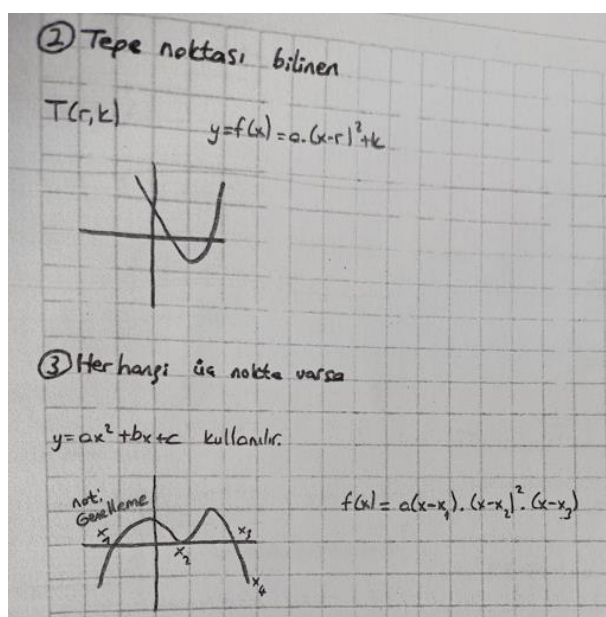 ② Tepe noktası bilinen
T(r,k)
y=f(x)=a.(x-r)²+k
③ Herhangi üç nokta varsa
y=ax²+bx+c kullanılır.
not:
Genelleme
f(x)=a(x-x₁).(x-x₂)².(x-x₃)
x₁
x₂
x₃
x₄